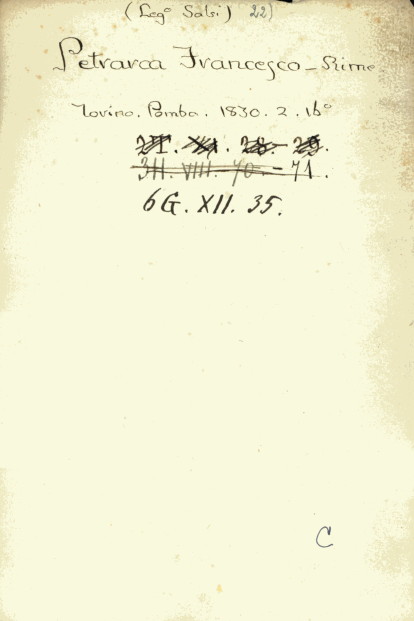 (Leg.º Salvi) 22)
Petrarca Francesco - Rime
Torino. Pomba. 1830. 2. 16º
28. 29.
3H. VIII. 70. - 71.
6G. XII. 35.
C